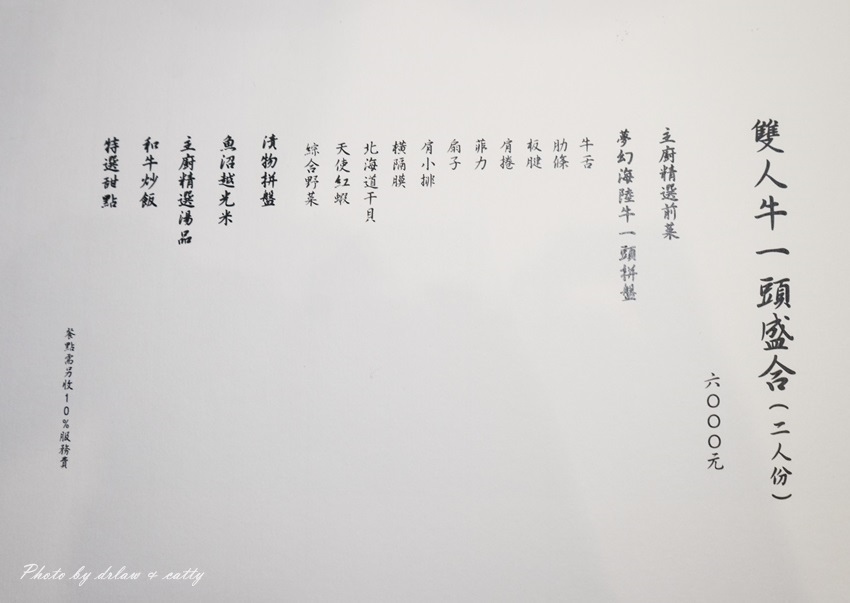 雙人牛一頭盛合(二人份)
六〇〇〇元
主廚精選前菜
夢幻海陸牛一頭拼盤
牛舌
肋條
板腱
肩捲
菲力
扇子
肩小排
橫隔膜
北海道干貝
天使紅蝦
綜合野菜
漬物拼盤
魚沼越光米
主廚精選湯品
和牛炒飯
特選甜點
餐點需另收10%服務費
Photo by drlaw & catty